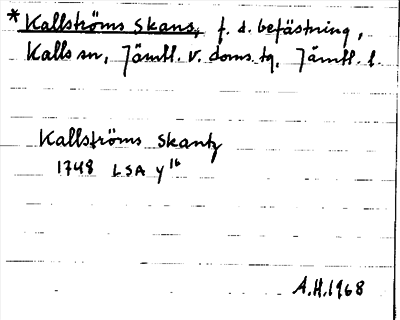 * Kallströms Skans, f. d. befästning,
Kalls sn, Jämtl. v. doms. tg, Jämtl. l.
Kallströms Skantz
1748 LSA Y 16
A.H. 1968